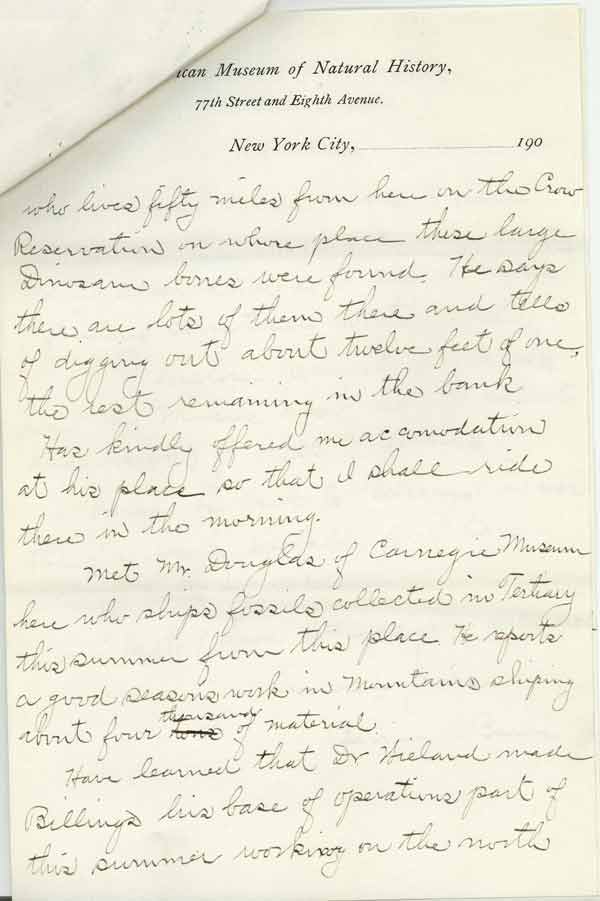 ican Museum of Natural History,
77th Street and Eighth Avenue.
New York City, 190
who lives fifty miles from here on the Crow
Reservation on whose place these large
Dinosaur bones were found. He says
there are lots of them there and tells
of digging out about twelve feet of one,
the rest remaining in the bank
Has kindly offered me accomodation
at his place so that I shall ride
there in the morning.
Met Mr. Douglas of Carnegie Museum
here who ships fossils collected in Tertiary
this summer from this place. He reports
a good seasons work in Mountains shiping
about four tons thousand of material.
Have learned that Dr Wieland made
Billings his base of operations part of
this summer working on the north